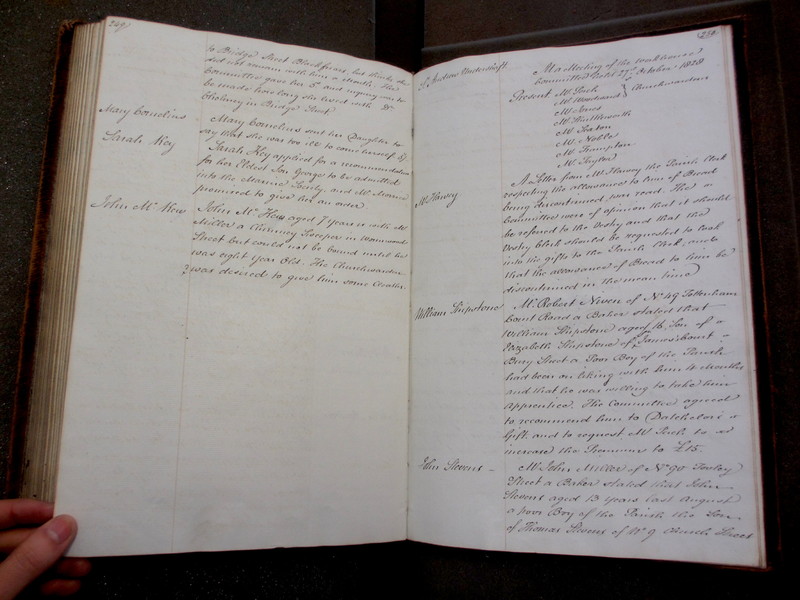 249
to Bridge Street Blackfriars but thinks she
did not remain with him a Month. The
Committee gave her 5/ and inquiry was to
be made how long she lived with Mr
Clothing in Bridge Street
Mary Cornelius
Mary Cornelius sent her Daughter to
say that she was too ill to come herself
Sarah Key
Sarah Key applied for a recommendation
for her Eldest Son George to be admitted
into the Marine Society and Mr
promised to give her an order
John Mc Kew
John Mc Kew aged 7 Years is with Mr
Miller a Chimney Sweeper in Wormwood
Street but could not be bound until he
was eight Year Old. The Churchwarden
was desired to give him some Cloaths.
250
St Andrew Undershaft
At a Meeting of the Workhouse
Committee held 27th October 1828
Present Mr Peek
Mr Woodward } Churchwardens
Mr Jones
Mr
Mr Paxton
Mr Noble
Mr Frampton
Mr Taylor
Mr Harvey
A Letter from Mr Harvey the Parish Clerk
respecting the allowance to him of Bread
being discontinued, was read. The
Committee were of opinion that it should
be referred to the Vestry and that the
Vestry Clerk should be requested to look
into the gifts to the Parish Clerk, and
that the allowance of Bread to him be
discontinued in the mean time
William Shipstone
Mr Robert Niven of No 49 Tottenham
Court Road a Baker stated that
William Shipstone aged 16. Son of
Elizabeth Shipstone of James Court
Bury Street a Poor Boy of the Parish
had been on liking with him 4 Months
and that he was willing to take him
Apprentice. The Committee agreed
to recommend him to Datchelor's
Gift. and to request Mr Peek to
increase the Premium to £15.
John Stevens
Mr John Miller of No 90
Street a Baker stated that John
Stevens aged 13 Years last August
a poor Boy of the Parish the Son
of Thomas Stevens of No 9 Church Street